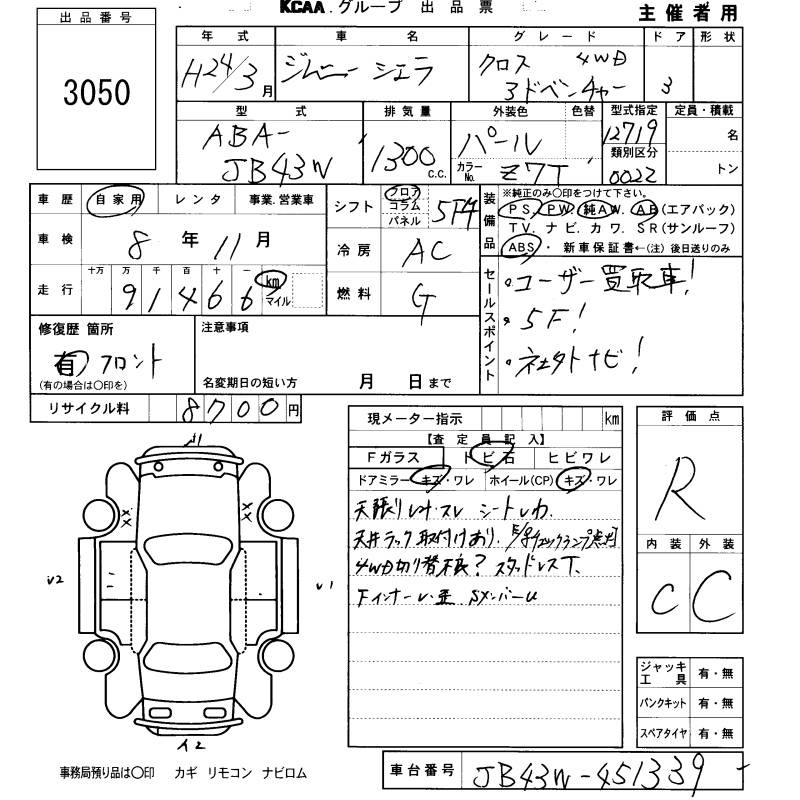 KCAA.グループ 出品票
主催者用
出品番号
3050
年式 車名 グレード ドア 形状
H24/3月 ジムニーシエラ クロス 4WD 3
アドベンチャー
型式 排気量 外装色 色替 型式指定 定員・積載
ABA- 1300c.c. パール 12719 名
類別区分
JB43W カラーNo. Z7T 0022 トン
車歴 自家用 レンタ 事業.営業車
シフト フロア コラム パネル 5F4
装備品
※純正のみ〇印をつけて下さい。
PS. PW. 純AW. AB(エアバック)
TV. ナビ. カワ. SR(サンルーフ)
ABS・ 新車保証書←(注) 後日送りのみ
車検 8年11月
冷房 AC
走行 十万 万 千 百 十 一
91466 km マイル
燃料 G
セールスポイント
・ユーザー買取車!
・5F!
・社外ナビ!
修復歴 箇所
有 フロント
(有の場合は〇印を)
注意事項
名変期日の短い方 月 日まで
リサイクル料 8700円
現メーター指示 km
【査定員記入】
Fガラス トビ石 ヒビワレ
ドアミラー キズ・ワレ ホイール(CP) キズ・ワレ
天張りヨゴレ・スレ シートしわ.
天井ラック取付けあり. E/gチェックランプ点灯
4WD切り替不良? スタッドレスT.
Fインナーレ・歪 SメンバーU
評価点
R
内装 外装
C C
U1
××
××
U2
U1
イ2
ジャッキ工具 有・無
パンクキット 有・無
スペアタイヤ 有・無
事務局預り品は〇印 カギ リモコン ナビロム
車台番号 JB43W-451339